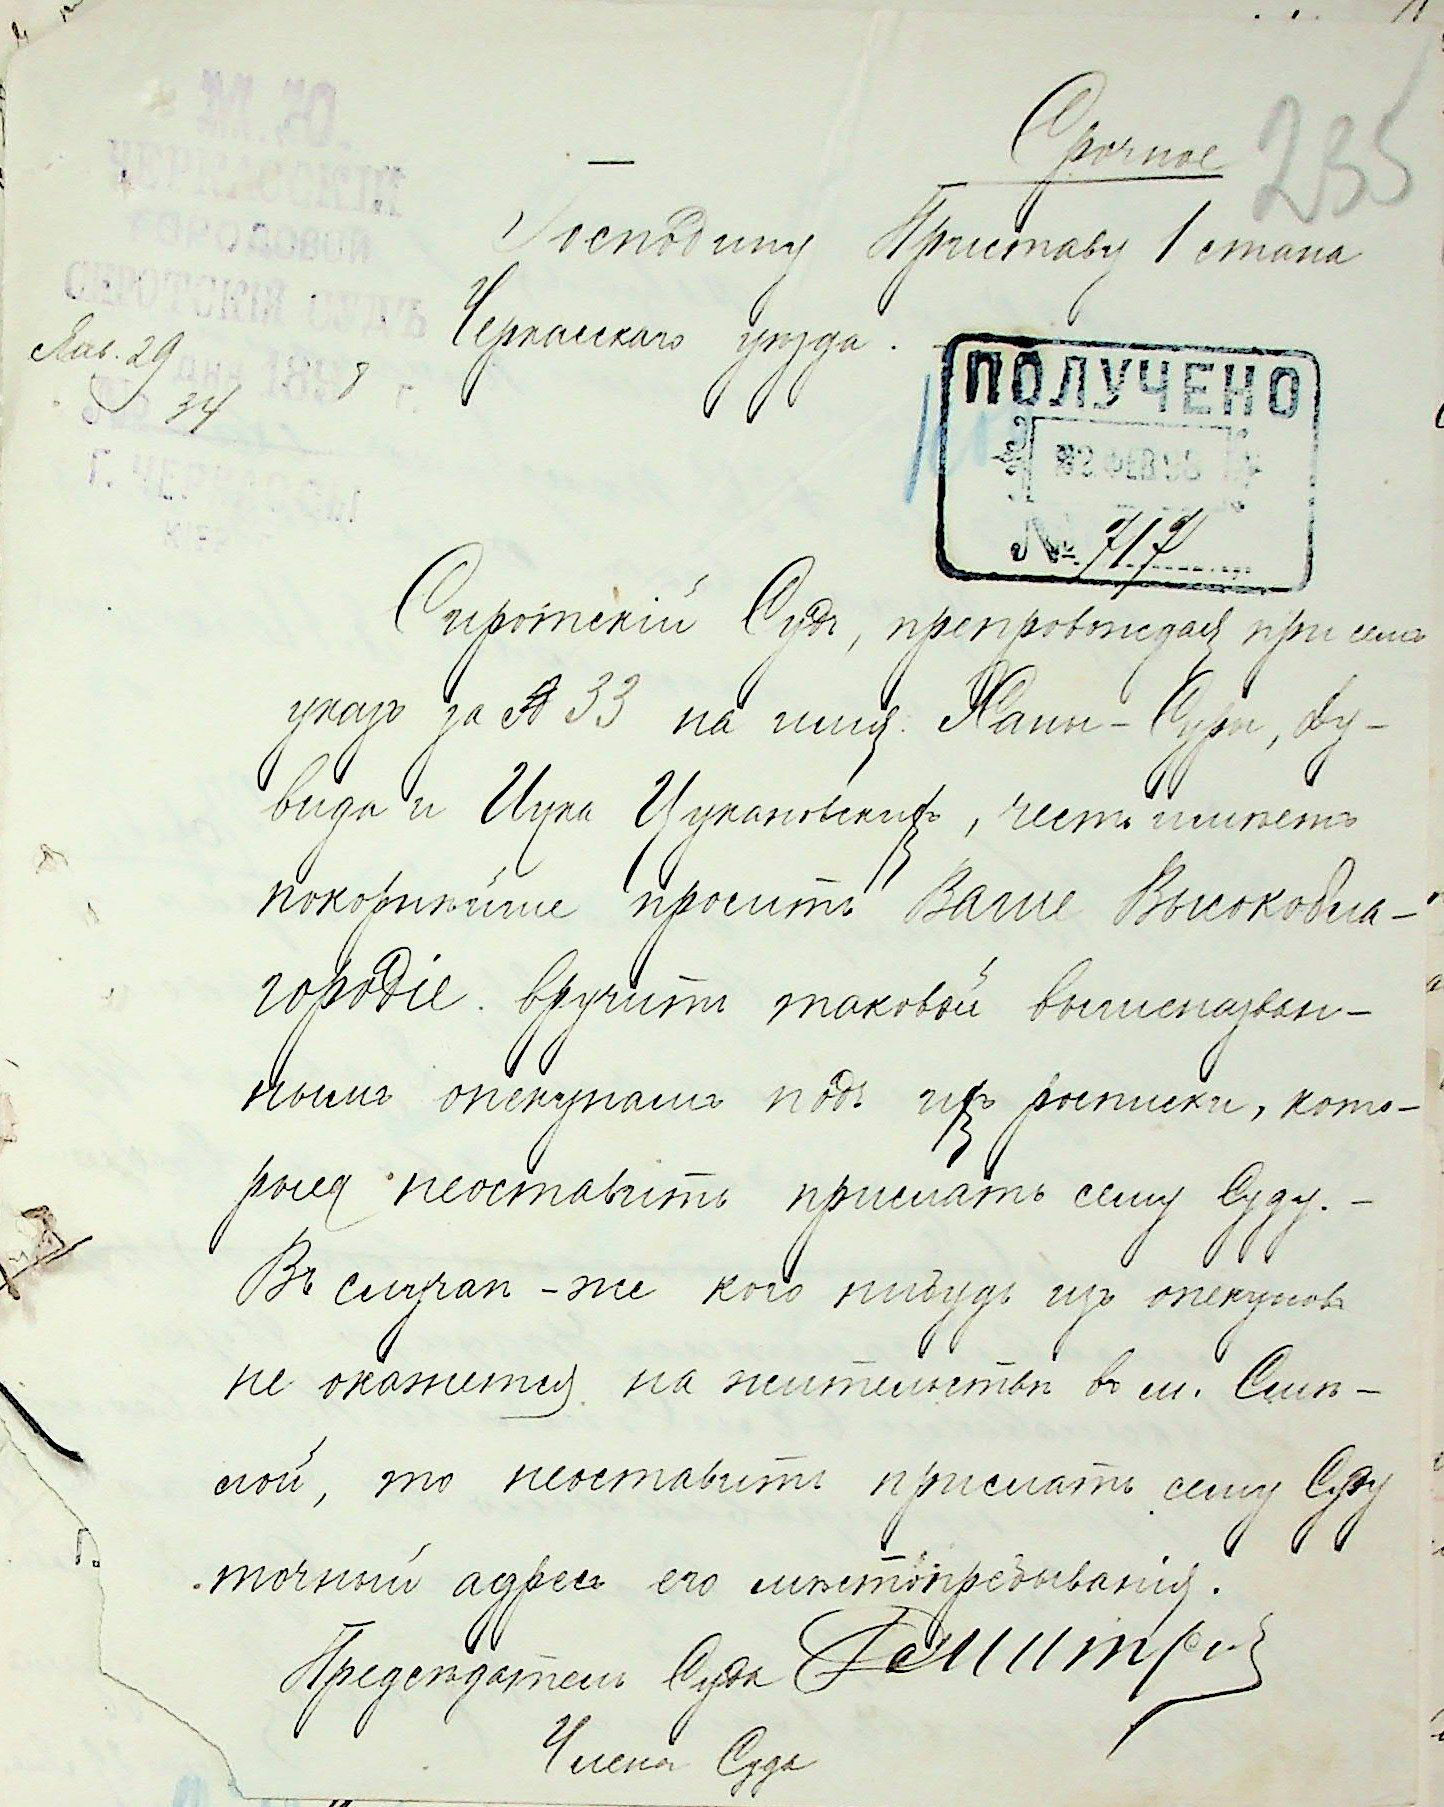 Срочное
235
Господину Приставу 1 стана
Черкасскаго уѣзда.
Янв. 29
34 8
ПОЛУЧЕНО
ФЕВ
№ 717
Сиротскій Судъ, препровождая при семъ
указъ за № 33 на имя Ханы-Суры, Ду-
вида и Ицка Цукановскихъ, честь имѣетъ
покорнѣйше просить Ваше Высокобла-
городіе вручить таковой вышеназван-
нымъ опекунамъ подъ ихъ росписки, кото-
рыя неоставить прислать сему Суду. -
Въ случаѣ - же кого нибудь изъ опекуновъ
не окажется на жительствѣ въ м. Смѣ-
лой, то неоставить прислать сему Суду
точный адресъ его мѣстопребыванія.
Предсѣдатель Суда
Члены Суда